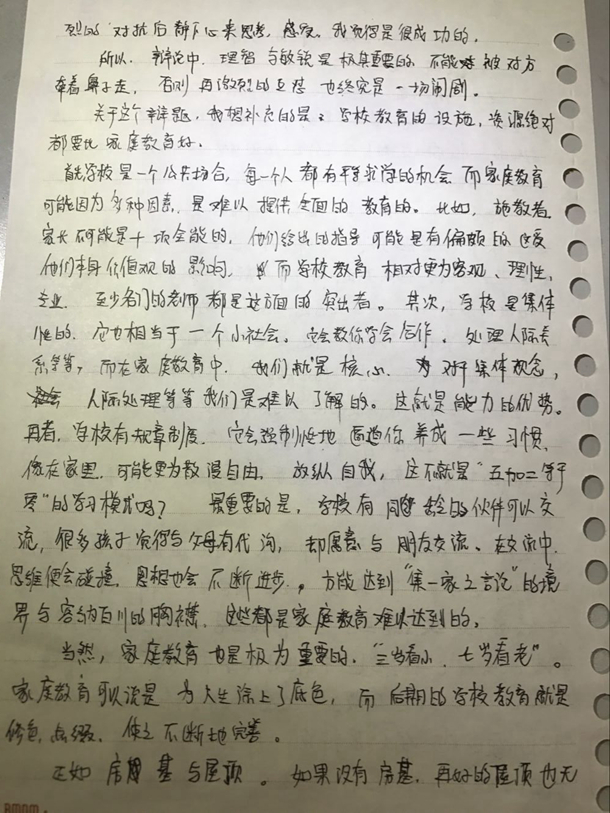 烈的对抗后静下心来思考，感受。我觉得是很成功的。
所以，辩论中，理智与敏锐是极其重要的，不能被对方
牵着鼻子走，否则再激烈的互怼也终究是一场闹剧。
关于这个辩题，我想补充的是：学校教育的设施，资源绝对
都要比家庭教育好。
首先学校是一个公共场合，每一个人都有平等求学的机会而家庭教育
可能因为多种因素，是难以提供全面的教育的。比如，施教者
家长不可能是十项全能的，他们给出的指导可能是有偏颇的这受
他们本身价值观的影响，而学校教育相对更为客观、理性，
专业，至少各门的老师都是这方面的突出者。其次，学校是集体
性的，它也相当于一个小社会。它会教你学会合作，处理人际关
系等等，而在家庭教育中，我们就是核心，对于集体观念，
人际处理等等我们是难以了解的。这就是能力的优势。
再者，学校有规章制度，它会强制性地逼迫你养成一些习惯，
像在家里，可能更为散漫自由，放纵自我，这不就是“五加二等于
零”的学习模式吗？最重要的是，学校有同龄的伙伴可以交
流，很多孩子觉得与父母有代沟，却愿意与朋友交流、在交流中，
思维便会碰撞，思想也会不断进步，方能达到“集一家之言论”的境
界与容纳百川的胸襟，这些都是家庭教育难以达到的。
当然，家庭教育也是极为重要的，“三岁看小，七岁看老”。
家庭教育可以说是为人生涂上了底色，而后期的学校教育就是
修色，点缀，使之不断地完善。
正如房基与屋顶。如果没有房基，再好的屋顶也无